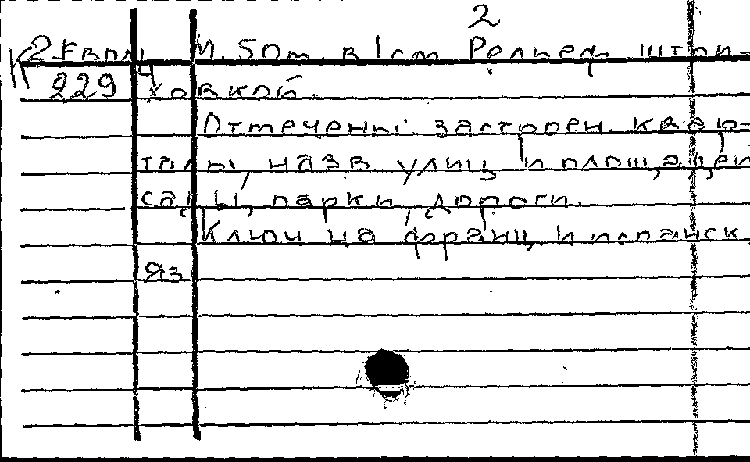 2
К 2-Евпл М. 50м. в 1см. Рельеф штри-
4
229 ховкой.
Отмечены: застроен. квар-
талы, назв. улиц и площадей
сады, парки, дороги.
Ключ на франц. и испанск.
яз.